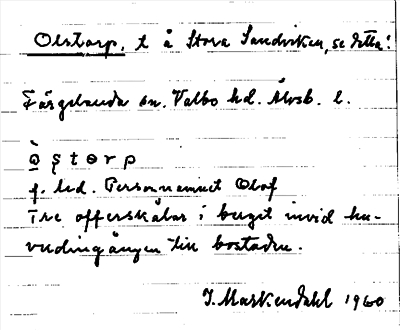 Olstorp, t å Stora Sandviken, se detta!
Färgelanda sn. Valbo hd. Älvsb. l.
ò̱ s̩ t o r p
f. led. Personnamnet Olof
Tre offerskålar i berget invid hu-
vudingången till bostaden.
J. Markendahl 1960